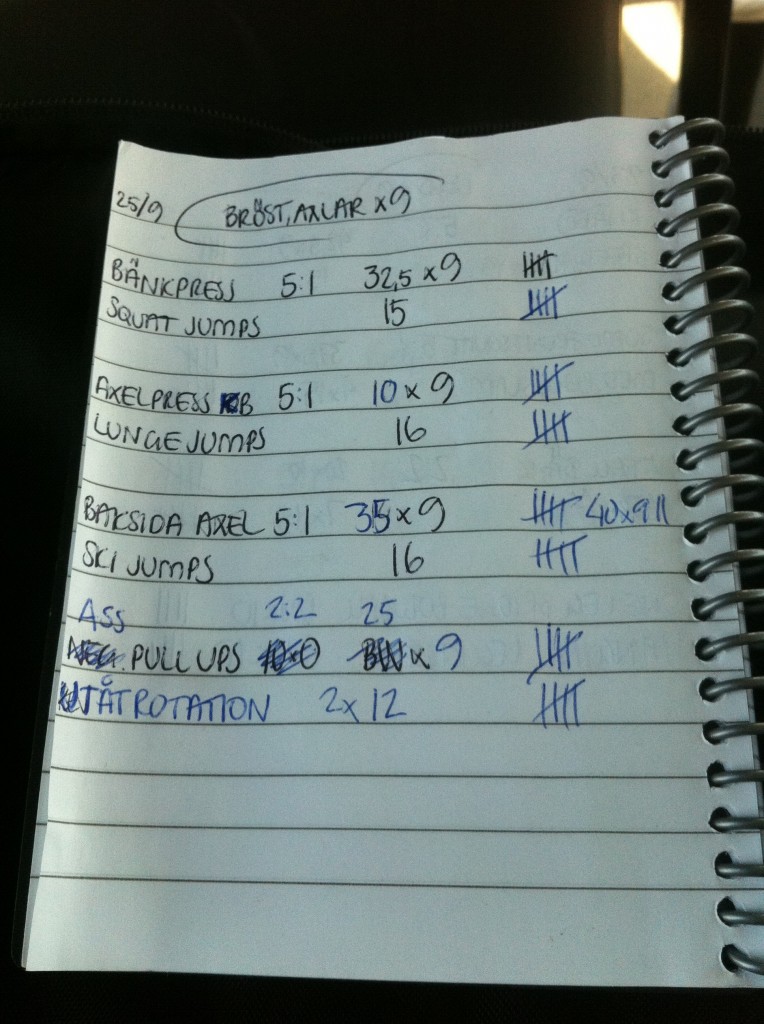 25/9 BRÖST, AXLAR x9
BÄNKPRESS 5:1 32,5 x 9 卌
SQUAT JUMPS 15 卌
AXELPRESS KB 5:1 10 x 9 卌
LUNGEJUMPS 16 卌
BAKSIDA AXEL 5:1 35 x 9 卌 40x9 II
SKI JUMPS 16 卌
ASS 2:2 25
PULL UPS x 9 卌
UTÅTROTATION 2x 12 卌